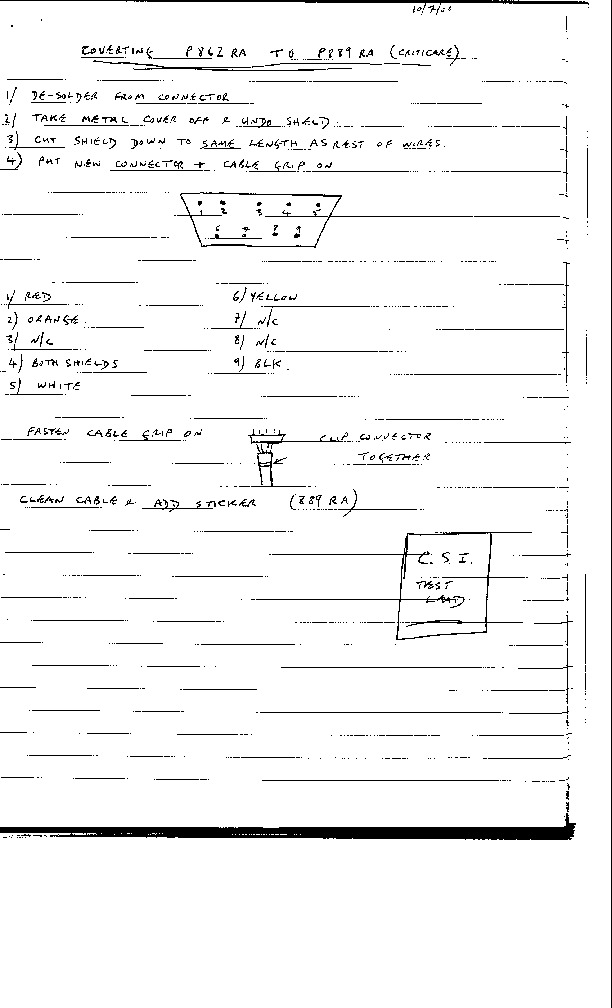 COVERTING P862 RA TO P889 RA (CRITICARE)
1/ DE-SOLDER FROM CONNECTOR
2/ TAKE METAL COVER OFF & UNDO SHIELD.
3) CUT SHIELD DOWN TO SAME LENGTH AS REST OF WIRES.
4) PUT NEW CONNECTOR + CABLE GRIP ON
1 2 3 4 5
6 7 8 9
1/ RED
2) ORANGE
3) N/C
4) BOTH SHIELDS
5) WHITE
6) YELLOW
7) N/C
8) N/C
9) BLK.
FASTEN CABLE GRIP ON
CLIP CONNECTOR
TOGETHER
CLEAN CABLE & ADD STICKER (889 RA)
C.S.I.
TEST
LEAD